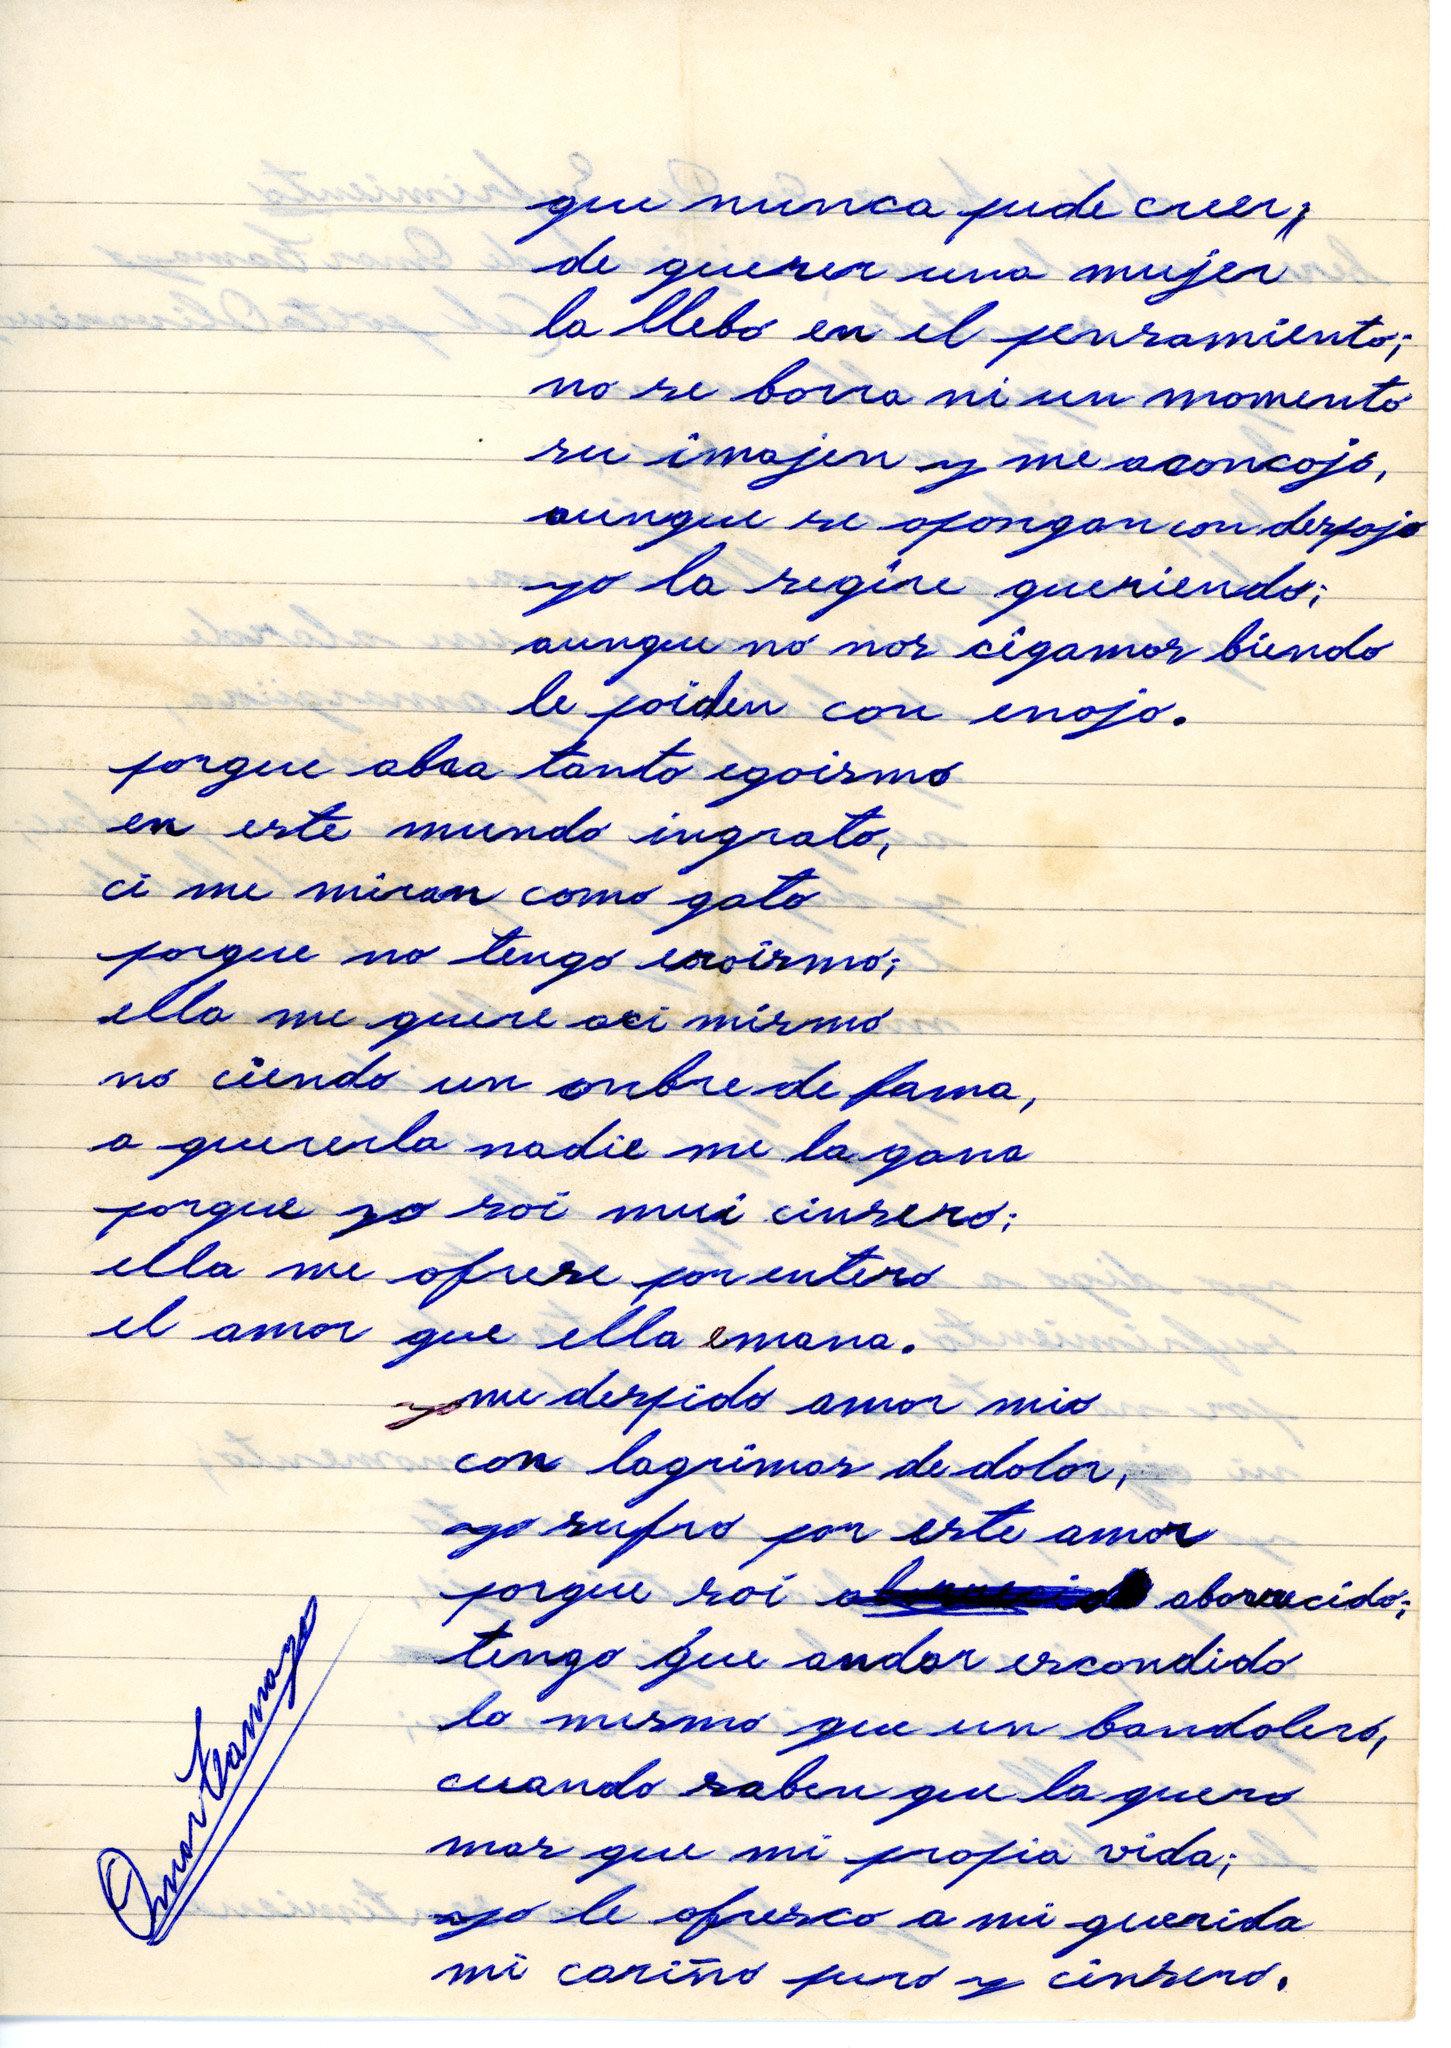 que nunca pude creer;
de querer una mujer
la llebo en el pensamiento;
no se borra ni un momento
su imajen y me aconcojo,
aunque se opongan con despojo
yo la segire queriendo;
aunque no nos cigamos biendo
le poiden con enojo.
porque abra tanto egoismo
en este mundo ingrato,
ci me miran como gato
porque no tengo eroismo;
ella me quere aci mismo
no ciendo un onbre de fama,
a quererla nadie me la gana
porque yo soi mui cinsero;
ella me ofrese por entero
el amor que ella emana.
y me despido amor mio
con lagrimas de dolor,
yo sufro por este amor
porque soi aborrecido;
tengo que andar escondido
lo mesmo que un bandolero,
cuando saben que la quero
mas que mi propia vida;
yo le ofresco a mi querida
mi cariño puro y cinsero.
Omar tamayo